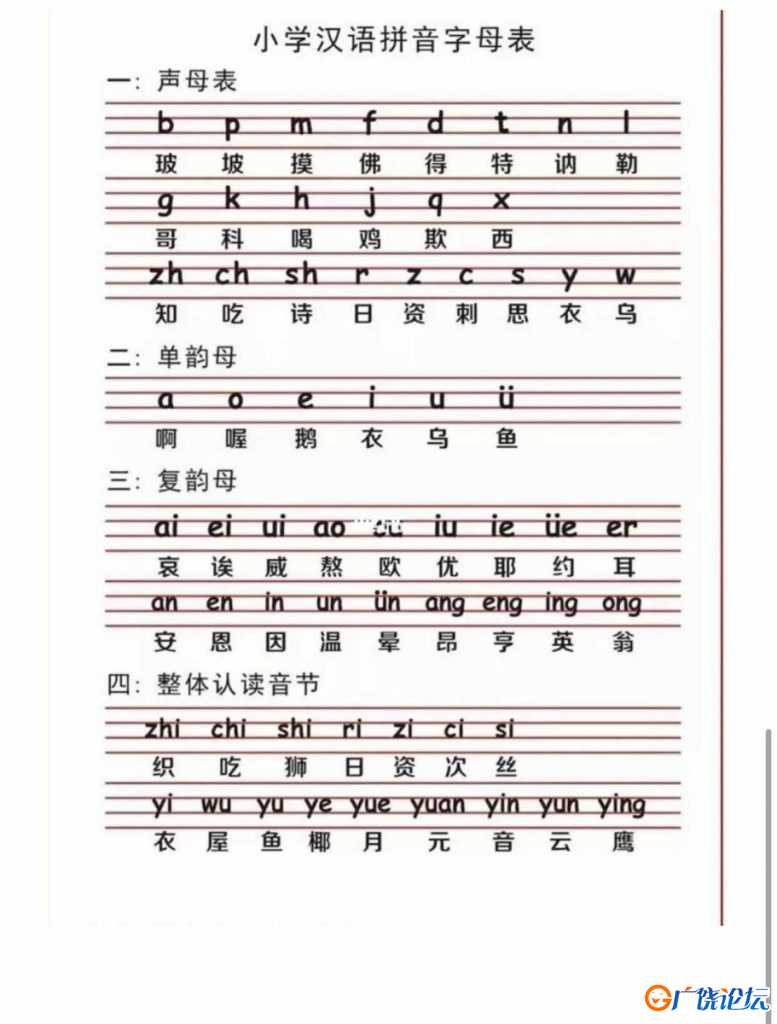 小学汉语拼音字母表
一：声母表
b p m f d t n l
玻 坡 摸 佛 得 特 讷 勒
g k h j q x
哥 科 喝 鸡 欺 西
zh ch sh r z c s y w
知 吃 诗 日 资 刺 思 衣 乌
二：单韵母
a o e i u ü
啊 喔 鹅 衣 乌 鱼
三：复韵母
ai ei ui ao iu ie üe er
哀 诶 威 熬 欧 优 耶 约 耳
an en in un ün ang eng ing ong
安 恩 因 温 晕 昂 亨 英 翁
四：整体认读音节
zhi chi shi ri zi ci si
织 吃 狮 日 资 次 丝
yi wu yu ye yue yuan yin yun ying
衣 屋 鱼 椰 月 元 音 云 鹰
广饶论坛